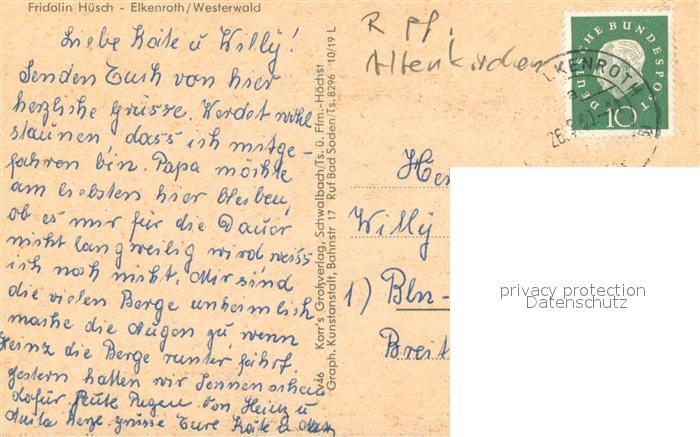 Fridolin Hüsch - Elkenroth/Westerwald
Liebe Käte u Willy!
Senden Euch von hier
herzliche Grüsse. Werdet wohl
staunen, dass ich mitge-
fahren bin. Papa möchte
am liebsten hier bleiben,
ob es mir für die Dauer
nicht langweilig wird weiss
ich noch nicht. Mir sind
die vielen Berge unheimlich
mache die Augen zu, wenn
Heinz die Berge runter fährt.
Gestern hatten wir Sonnenschein
dafür heute Regen. Von Heinz u
Anita herzl. Grüsse Eure Käte u
V46 Korr's Großverlag, Schwalbach/Ts. ü. Ffm.-Höchst
Graph. Kunstanstalt, Bahnstr 17 Ruf Bad Soden/Ts. 8296 10/19 L
R Pf.
Altenkirchen
DEUTSCHE BUNDESPOST
10
ELKENROTH
Willy
1) Bln-
Breit
privacy protection
Datenschutz